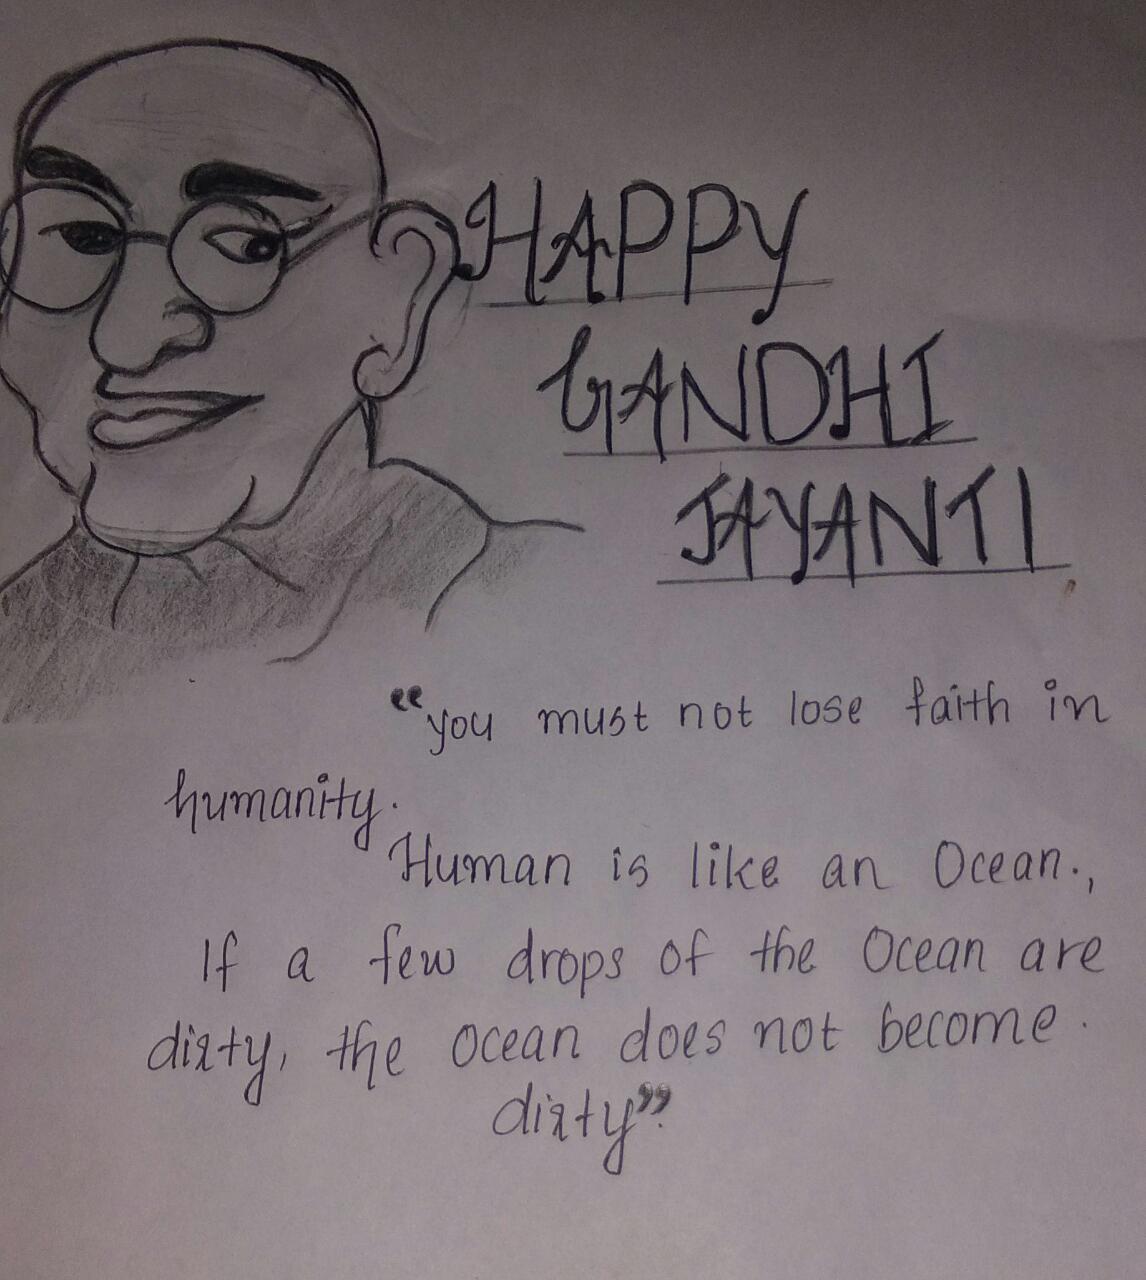 HAPPY
GANDHI
JAYANTI
“you must not lose faith in
humanity.
Human is like an Ocean.,
If a few drops of the Ocean are
dirty, the ocean does not become.
dirty”.